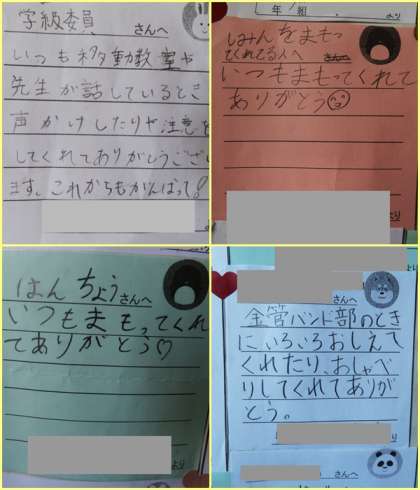 学級委員 さんへ
いつも移動教室や
先生が話しているとき
声かけしたりや注意を
してくれてありがとうござい
ます。これからもがんばって!
年 組 より
しみんをまもっ
てくれてる人へ
いつもまもってくれて
ありがとう
より
はんちょう さんへ
いつもまもってくれ
てありがとう♡
より
より
さんへ
金管バンド部のとき
にいろいろおしえて
くれたり、おしゃべ
りしてくれてありが
とう。
より
さんへ